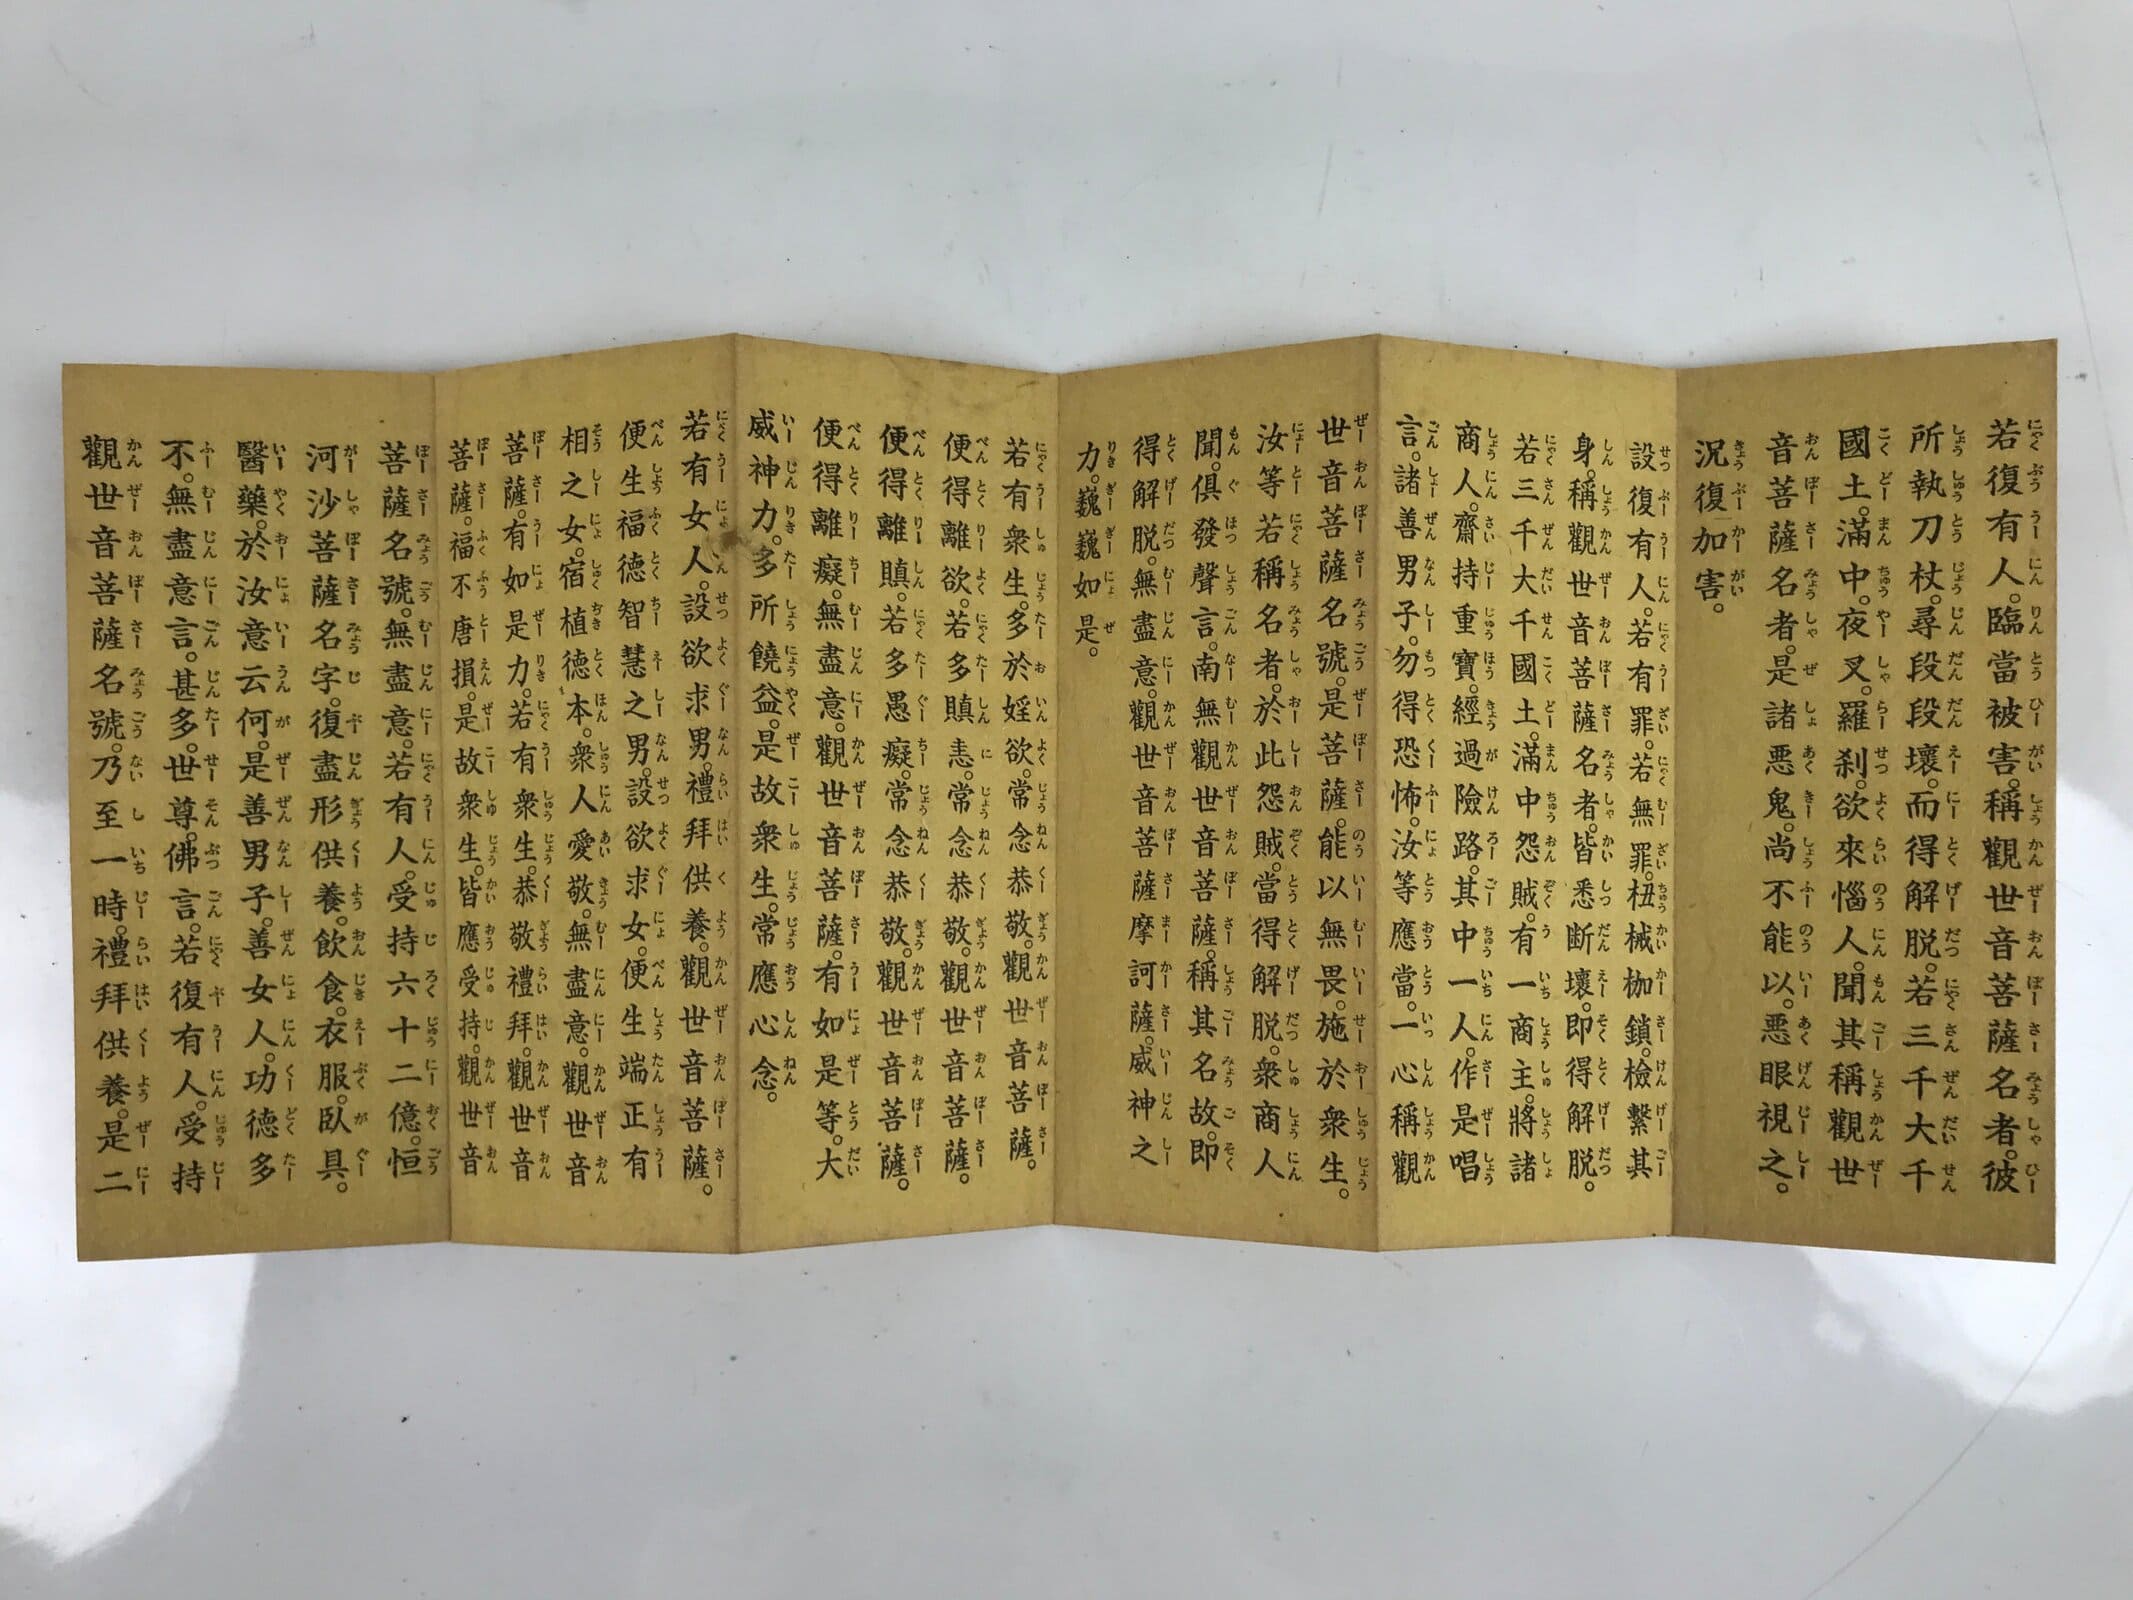 若復有人。臨當被害。稱觀世音菩薩名者。彼
所執刀杖。尋段段壞。而得解脱。若三千大千
國土。滿中。夜叉。羅刹。欲來惱人。聞其稱觀世
音菩薩名者。是諸悪鬼。尚不能以。悪眼視之。
況復加害。
設復有人。若有罪。若無罪。杻械枷鎖。檢繫其
身。稱觀世音菩薩名者。皆悉断壞。即得解脱。
若三千大千國土。滿中怨賊。有一商主。將諸
商人。齋持重寶。經過險路。其中一人。作是唱
言。諸善男子。勿得恐怖。汝等應當。一心稱觀
世音菩薩名號。是菩薩。能以無畏。施於衆生。
汝等若稱名者。於此怨賊。當得解脱。衆商人
聞。俱發聲言。南無觀世音菩薩。稱其名故。即
得解脱。無盡意。觀世音菩薩摩訶薩。威神之
力。巍巍如是。
若有衆生。多於婬欲。常念恭敬。觀世音菩薩。
便得離欲。若多瞋恚。常念恭敬。觀世音菩薩。
便得離瞋。若多愚癡。常念恭敬。觀世音菩薩。
便得離癡。無盡意。觀世音菩薩。有如是等。大
威神力。多所饒益。是故衆生。常應心念。
若有女人。設欲求男。禮拜供養。觀世音菩薩。
便生福德智慧之男。設欲求女。便生端正有
相之女。宿植德本。衆人愛敬。無盡意。觀世音
菩薩。有如是力。若有衆生。恭敬禮拜。觀世音
菩薩。福不唐損。是故衆生。皆應受持。觀世音
菩薩名號。無盡意。若有人。受持六十二億。恒
河沙菩薩名字。復盡形供養。飲食。衣服。臥具。
醫藥。於汝意云何。是善男子。善女人。功德多
不。無盡意言。甚多。世尊。佛言。若復有人。受持
觀世音菩薩名號。乃至一時。禮拜供養。是二